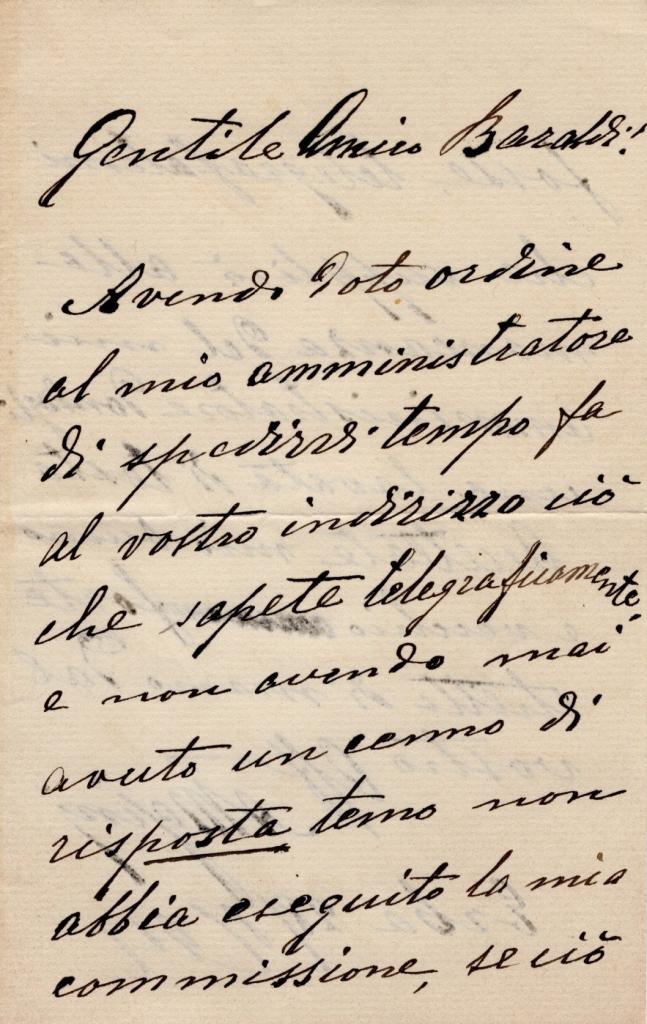 Gentile Amico Baraldi!
Avendo dato ordine
al mio amministratore
di spedirvi tempo fa
al vostro indirizzo ciò
che sapete telegraficamente
e non avendo mai
avuto un cenno di
risposta temo non
abbia eseguito la mia
commissione, se ciò